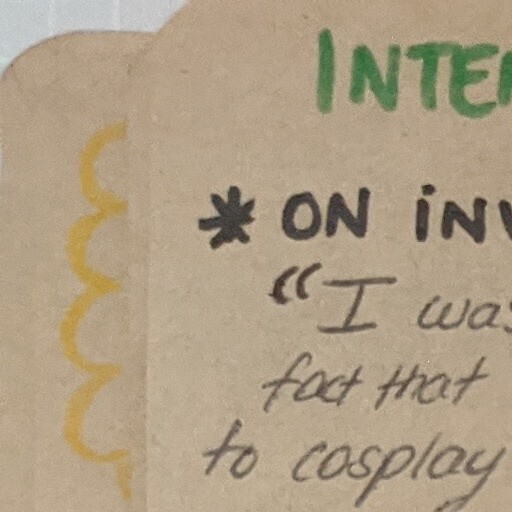 INTE
* ON INV
“I was
fact that
to cosplay